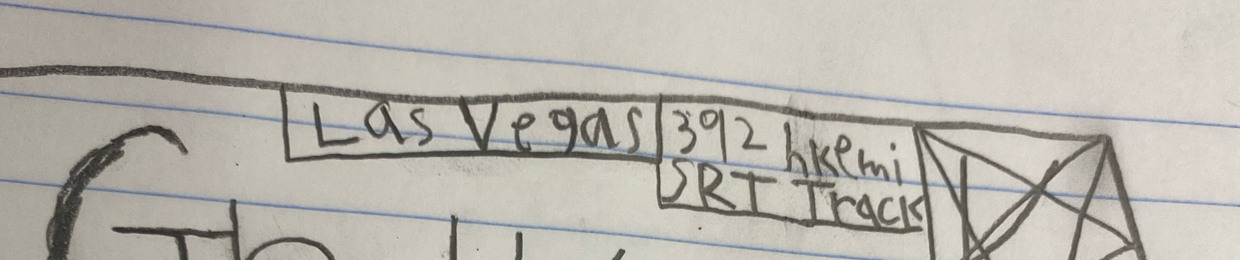 Las Vegas
392 hkemi
SRT Track